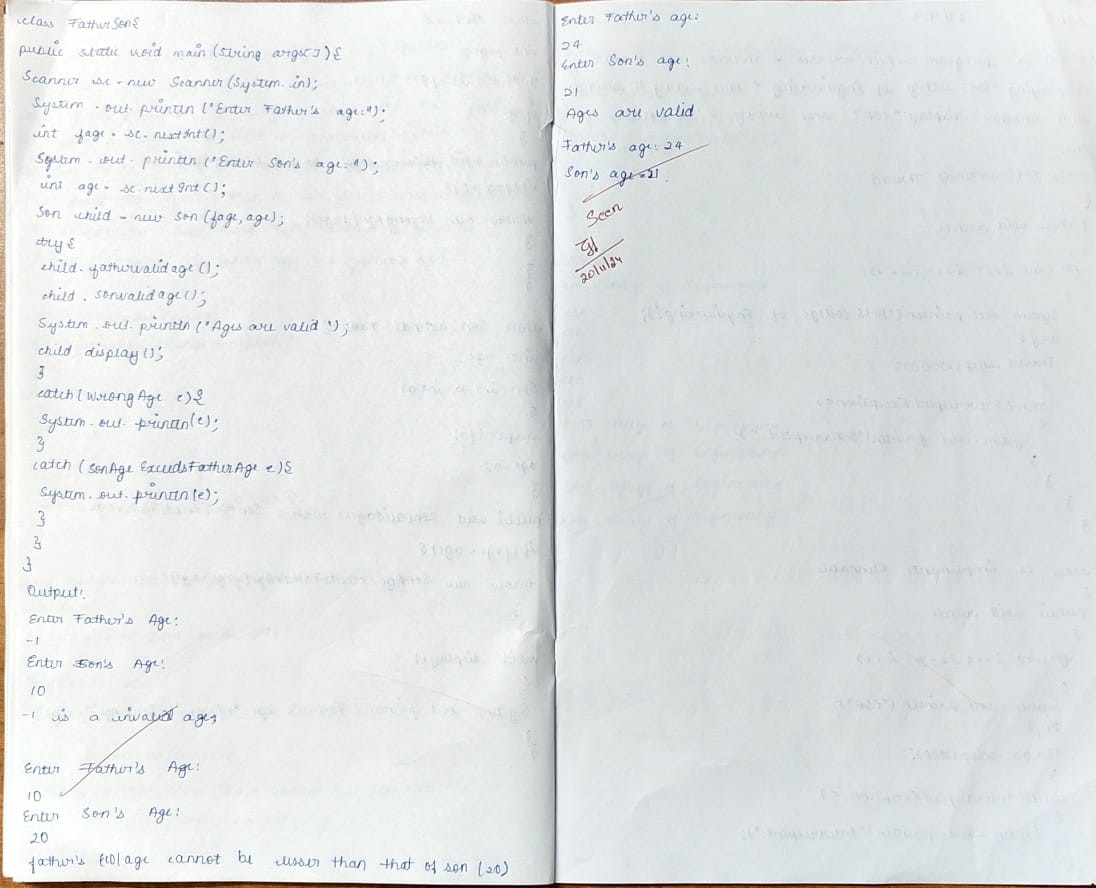 class FatherSon{
public static void main(String args[]){
Scanner sc = new Scanner(System.in);
System.out.println("Enter Father's age:");
int fage = sc.nextInt();
System.out.println("Enter Son's age:");
int age = sc.nextInt();
Son child = new Son(fage, age);
try{
child.fathervalidage();
child.sonvalidage();
System.out.println("Ages are valid");
child display();
}
catch(WrongAge e){
System.out.println(e);
}
catch(SonAgeExceedsFatherAge e){
System.out.println(e);
}
}
}
Output:
Enter Father's Age:
-1
Enter Son's Age:
10
-1 is a invalid age
Enter Father's Age:
10
Enter Son's Age:
20
father's age cannot be lesser than that of son (20)
Enter Father's age:
24
Enter Son's age:
21
Ages are valid
Father's age: 24
Son's age=21
Seen
20/11/24